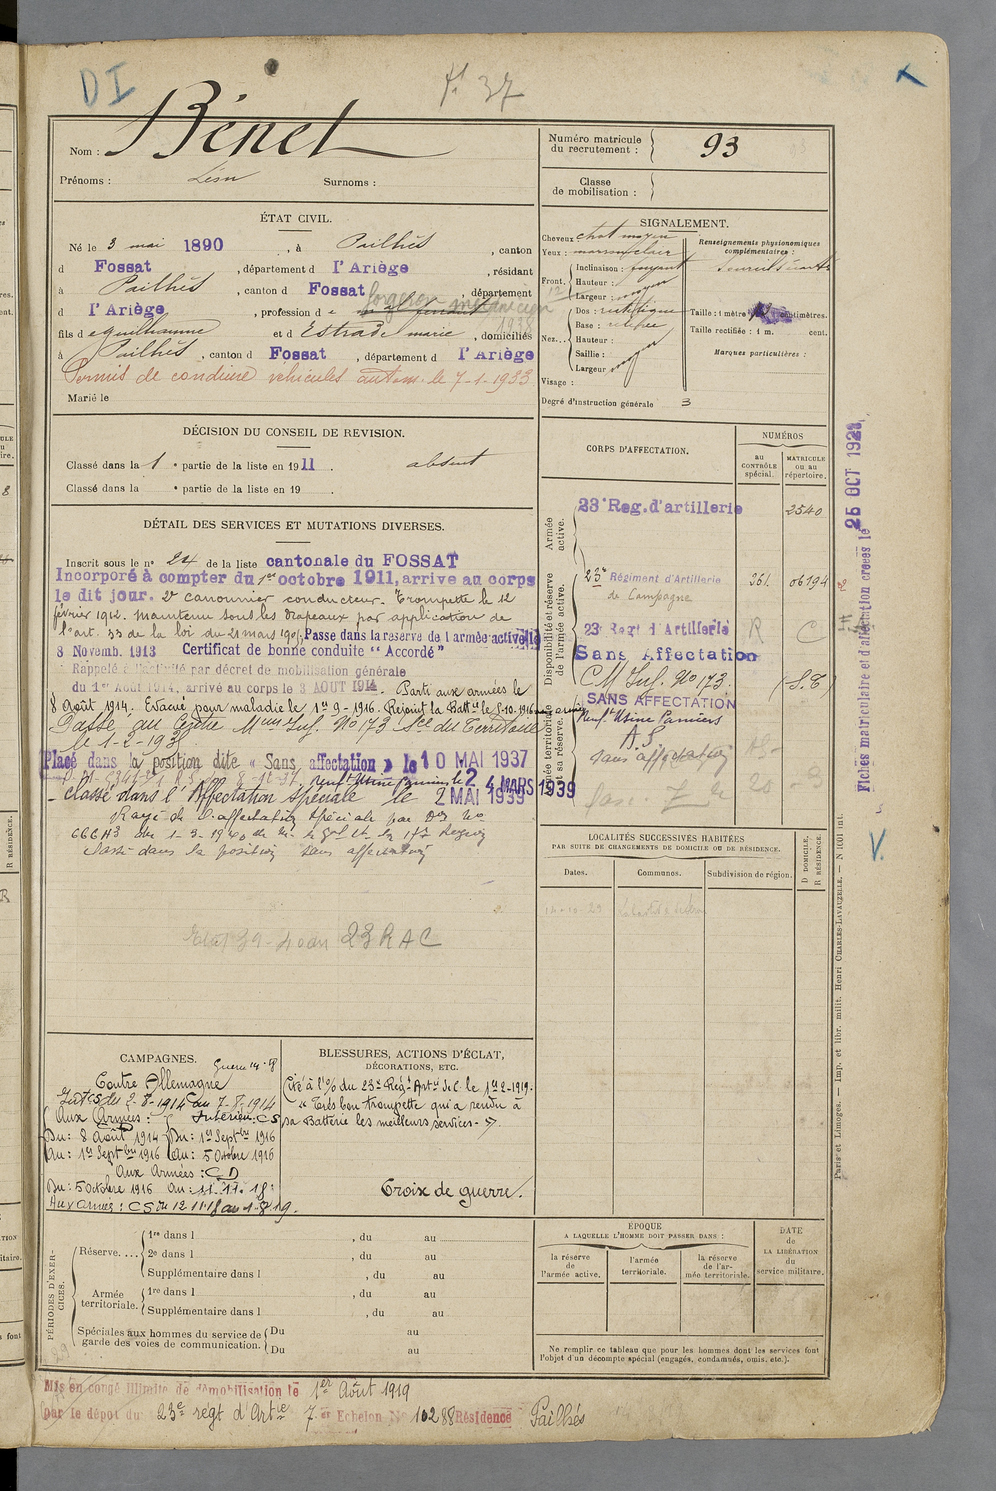 DI
37
Nom : Bénet
Prénoms : Léon Surnoms :
Numéro matricule du recrutement : 93
Classe de mobilisation :
ÉTAT CIVIL.
Né le 3 mai 1890, à Pailhès, canton
d Fossat, département d l'Ariège, résidant
à Pailhès, canton d Fossat, département
d l'Ariège, profession d e forgeron mécanicien
fils d e Guilhaume et d Estrade marie, domiciliés
à Pailhès, canton d Fossat, département d l'Ariège
Permis de conduire véhicules autom. le 7-1-1933
Marié le
SIGNALEMENT.
Cheveux chat moyen
Yeux : marron clair
Front. Inclinaison : fuyant
Hauteur :
Largeur : moyen
Nez... Dos : rectiligne
Base : relevée
Hauteur :
Saillie :
Largeur : moyen
Visage :
Degré d'instruction générale 3
Renseignements physionomiques complémentaires :
Taille : 1 mètre centimètres.
Taille rectifiée : 1 m. cent.
Marques particulières :
DÉCISION DU CONSEIL DE REVISION.
Classé dans la 1e partie de la liste en 1911. absent
Classé dans la e partie de la liste en 19
DÉTAIL DES SERVICES ET MUTATIONS DIVERSES.
Inscrit sous le n° 24 de la liste cantonale du FOSSAT
Incorporé à compter du 1er octobre 1911, arrive au corps
le dit jour. 2e canonnier conducteur. Trompette le 12
février 1912. Maintenu sous les drapeaux par application de
l'art. 33 de la loi du 21 mars 1905. Passe dans la réserve de l'armée active le
8 Novemb. 1913 Certificat de bonne conduite "Accordé"
Rappelé à l'activité par décret de mobilisation générale
du 1er Août 1914, arrivé au corps le 3 AOUT 1914. Parti aux armées le
8 Août 1914. Evacué pour maladie le 1er 9-1916. Rejoint la Battie le 5-10.1916
Passé au Centre Mum Inf. No 173 Sce du Territoire
le 1-2-193
Placé dans la position dite « Sans affectation » le 10 MAI 1937
24 MARS 1939
Classé dans l'Affectation Spéciale le 2 MAI 1939
Rayé de l'affectation spéciale par Don No
Classé dans la position sans affectation
23 RAC
CORPS D'AFFECTATION.
NUMÉROS
au CONTRÔLE spécial.
MATRICULE ou au répertoire.
Armée active.
23e Reg. d'artillerie 2540
Disponibilité et réserve de l'armée active.
23e Régiment d'Artillerie de Campagne 361 06194
23 Regt d'Artillerie R C
Sans Affectation
C M Inf. No 173. (S.T)
SANS AFFECTATION
Armée territoriale et sa réserve.
A.S
Sans affectation
25 OCT 1929
Fiches matriculaire et d'affectation créées le
V.
LOCALITÉS SUCCESSIVES HABITÉES
PAR SUITE DE CHANGEMENTS DE DOMICILE OU DE RÉSIDENCE.
Dates. Communes. Subdivision de région. D DOMICILE. R RÉSIDENCE.
CAMPAGNES. Guerre 14-18
Contre Allemagne
du 3-8-1914 au 7-8-1914
Aux Armées : Intérieur : CS
Du : 8 Août 1914 Du : 1er Septbre 1916
Au : 1er Septbre 1916 Au : 5 Octobre 1916
Aux Armées : CD
Du : 5 Octobre 1916 Au : 11.11.18
Aux Armées : CS du 12 11 18 au 1-8-19.
BLESSURES, ACTIONS D'ÉCLAT, DÉCORATIONS, ETC.
Cité à l'o/ du 23e Regt Artie de C. le 1er 2-1919.
"Très bon trompette qui a rendu à
sa Batterie les meilleurs services-".
Croix de guerre.
PÉRIODES D'EXERCICES.
Réserve.... 1re dans l , du au
2e dans l , du au
Supplémentaire dans l , du au
Armée territoriale. 1re dans l , du au
Supplémentaire dans l , du au
Spéciales aux hommes du service de garde des voies de communication. Du au
Du au
ÉPOQUE
A LAQUELLE L'HOMME DOIT PASSER DANS :
la réserve de l'armée active.
l'armée territoriale.
la réserve de l'armée territoriale.
DATE de LA LIBÉRATION du service militaire.
Ne remplir ce tableau que pour les hommes dont les services font
l'objet d'un décompte spécial (engagés, condamnés, omis, etc.).
Paris et Limoges. — Imp. et libr. milit. Henri CHARLES-LAVAUZELLE. — N 1001 int.
Mis en congé illimité de démobilisation le 1er Août 1919
par le dépôt du 23e régt d'Artie 7e Echelon No 10288 Résidence Pailhés